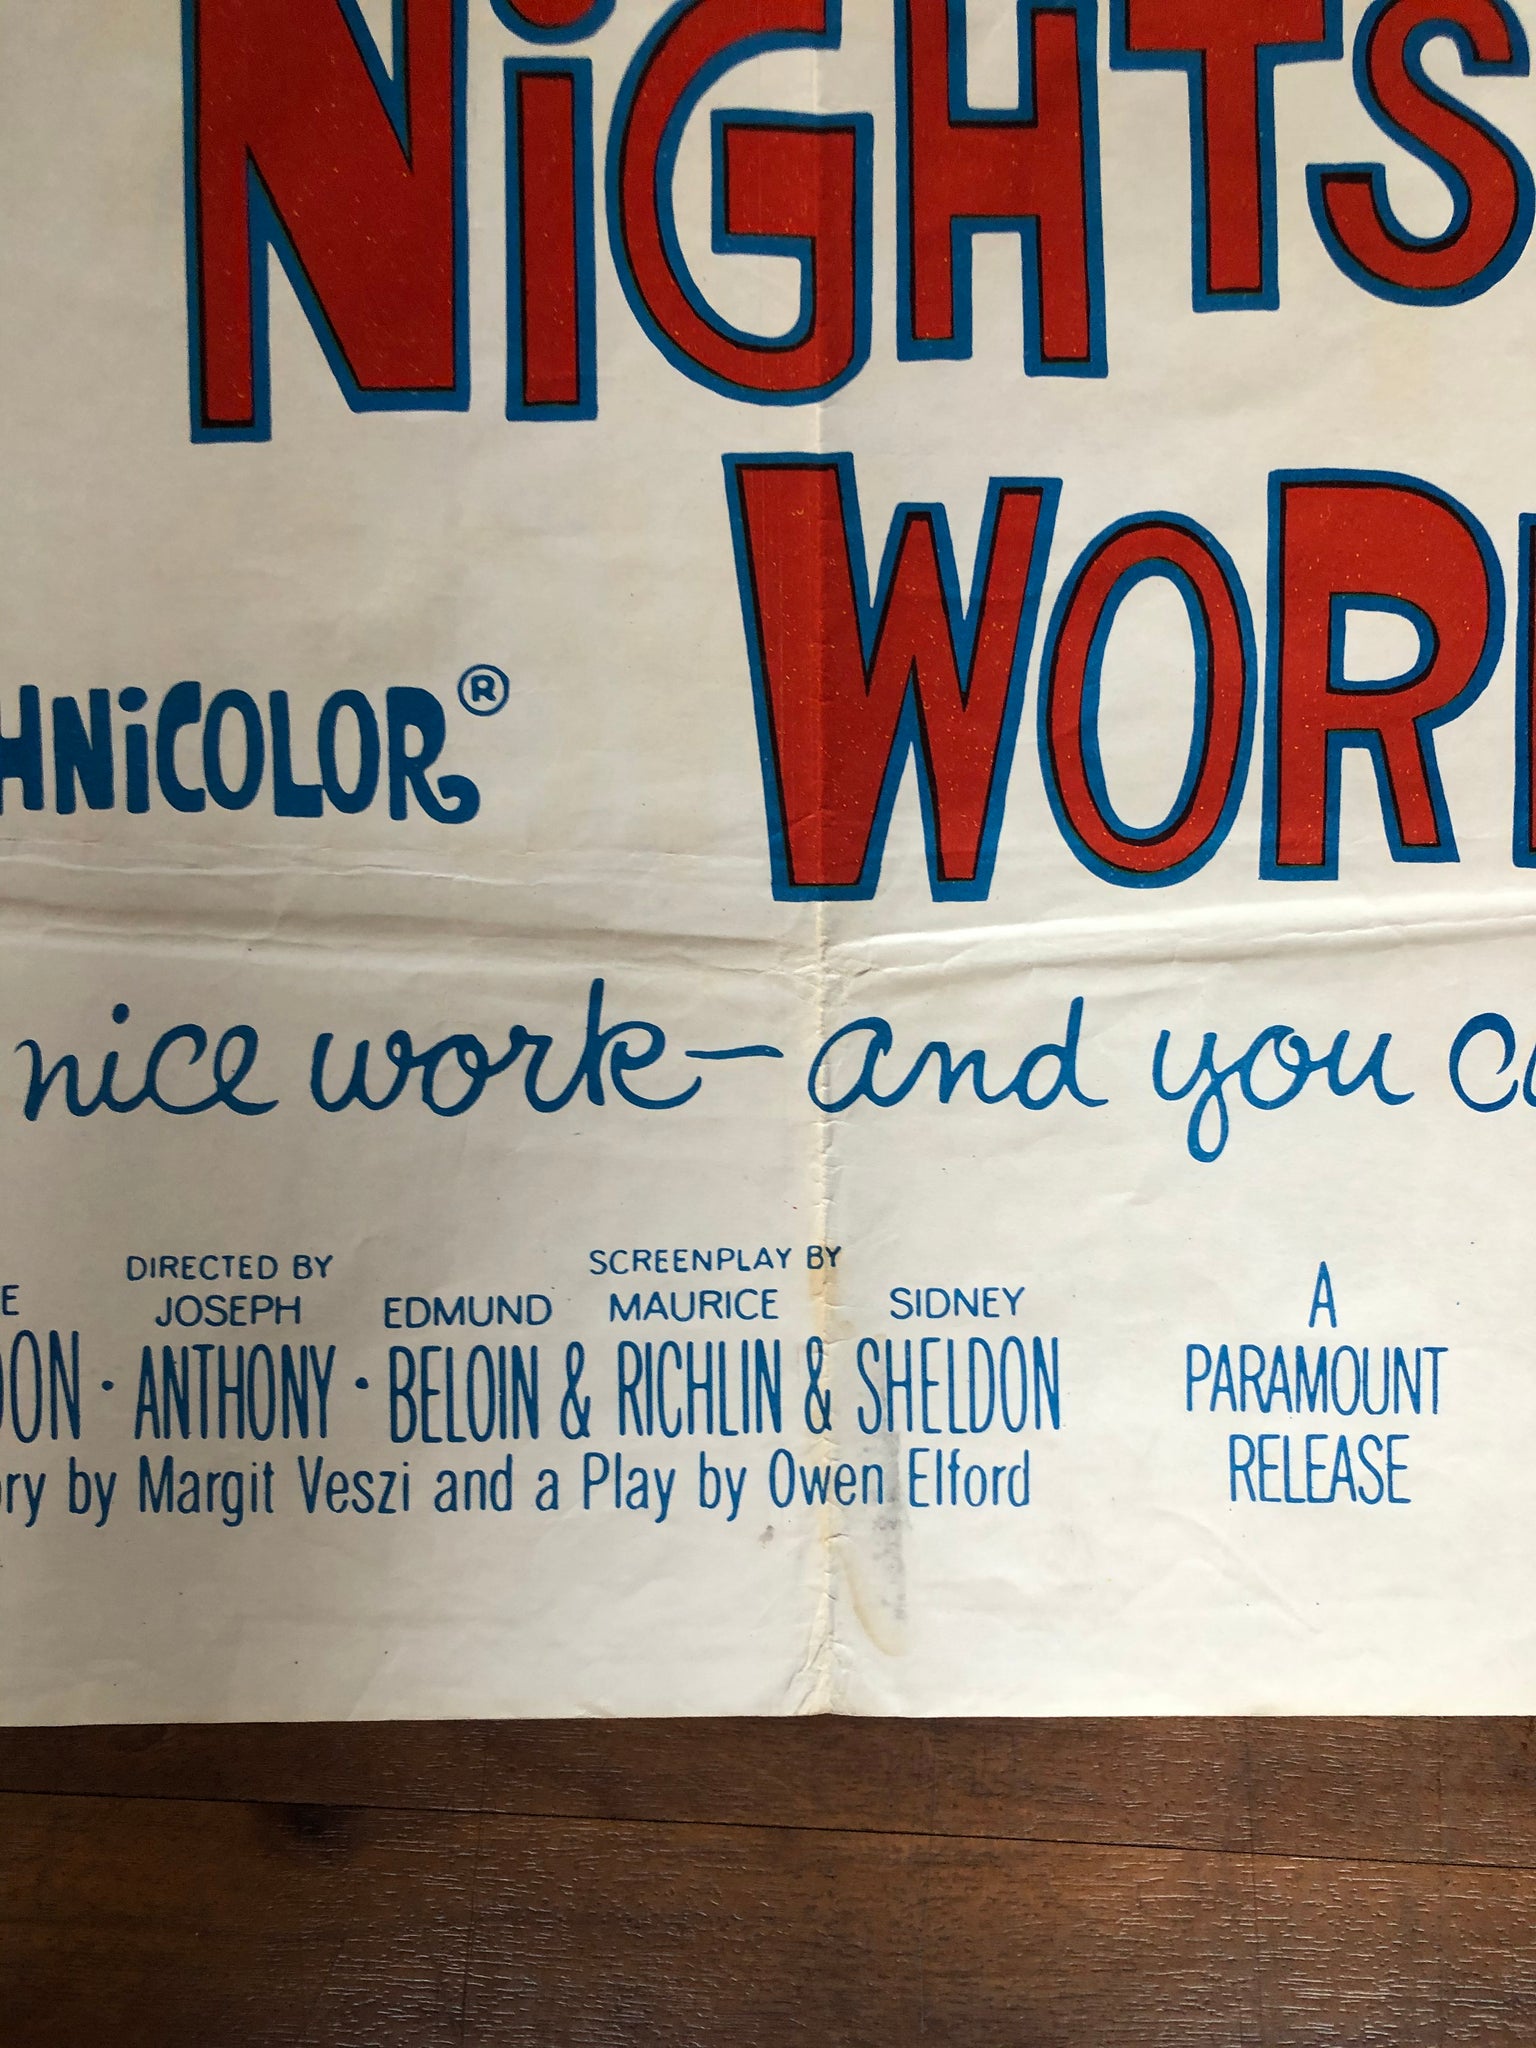 NiGHTS
WOR
HNiCOLOR®
nice work—and you c
DIRECTED BY SCREENPLAY BY
E JOSEPH EDMUND MAURICE SIDNEY A
DON · ANTHONY · BELOIN & RICHLIN & SHELDON PARAMOUNT
ry by Margit Veszi and a Play by Owen Elford RELEASE